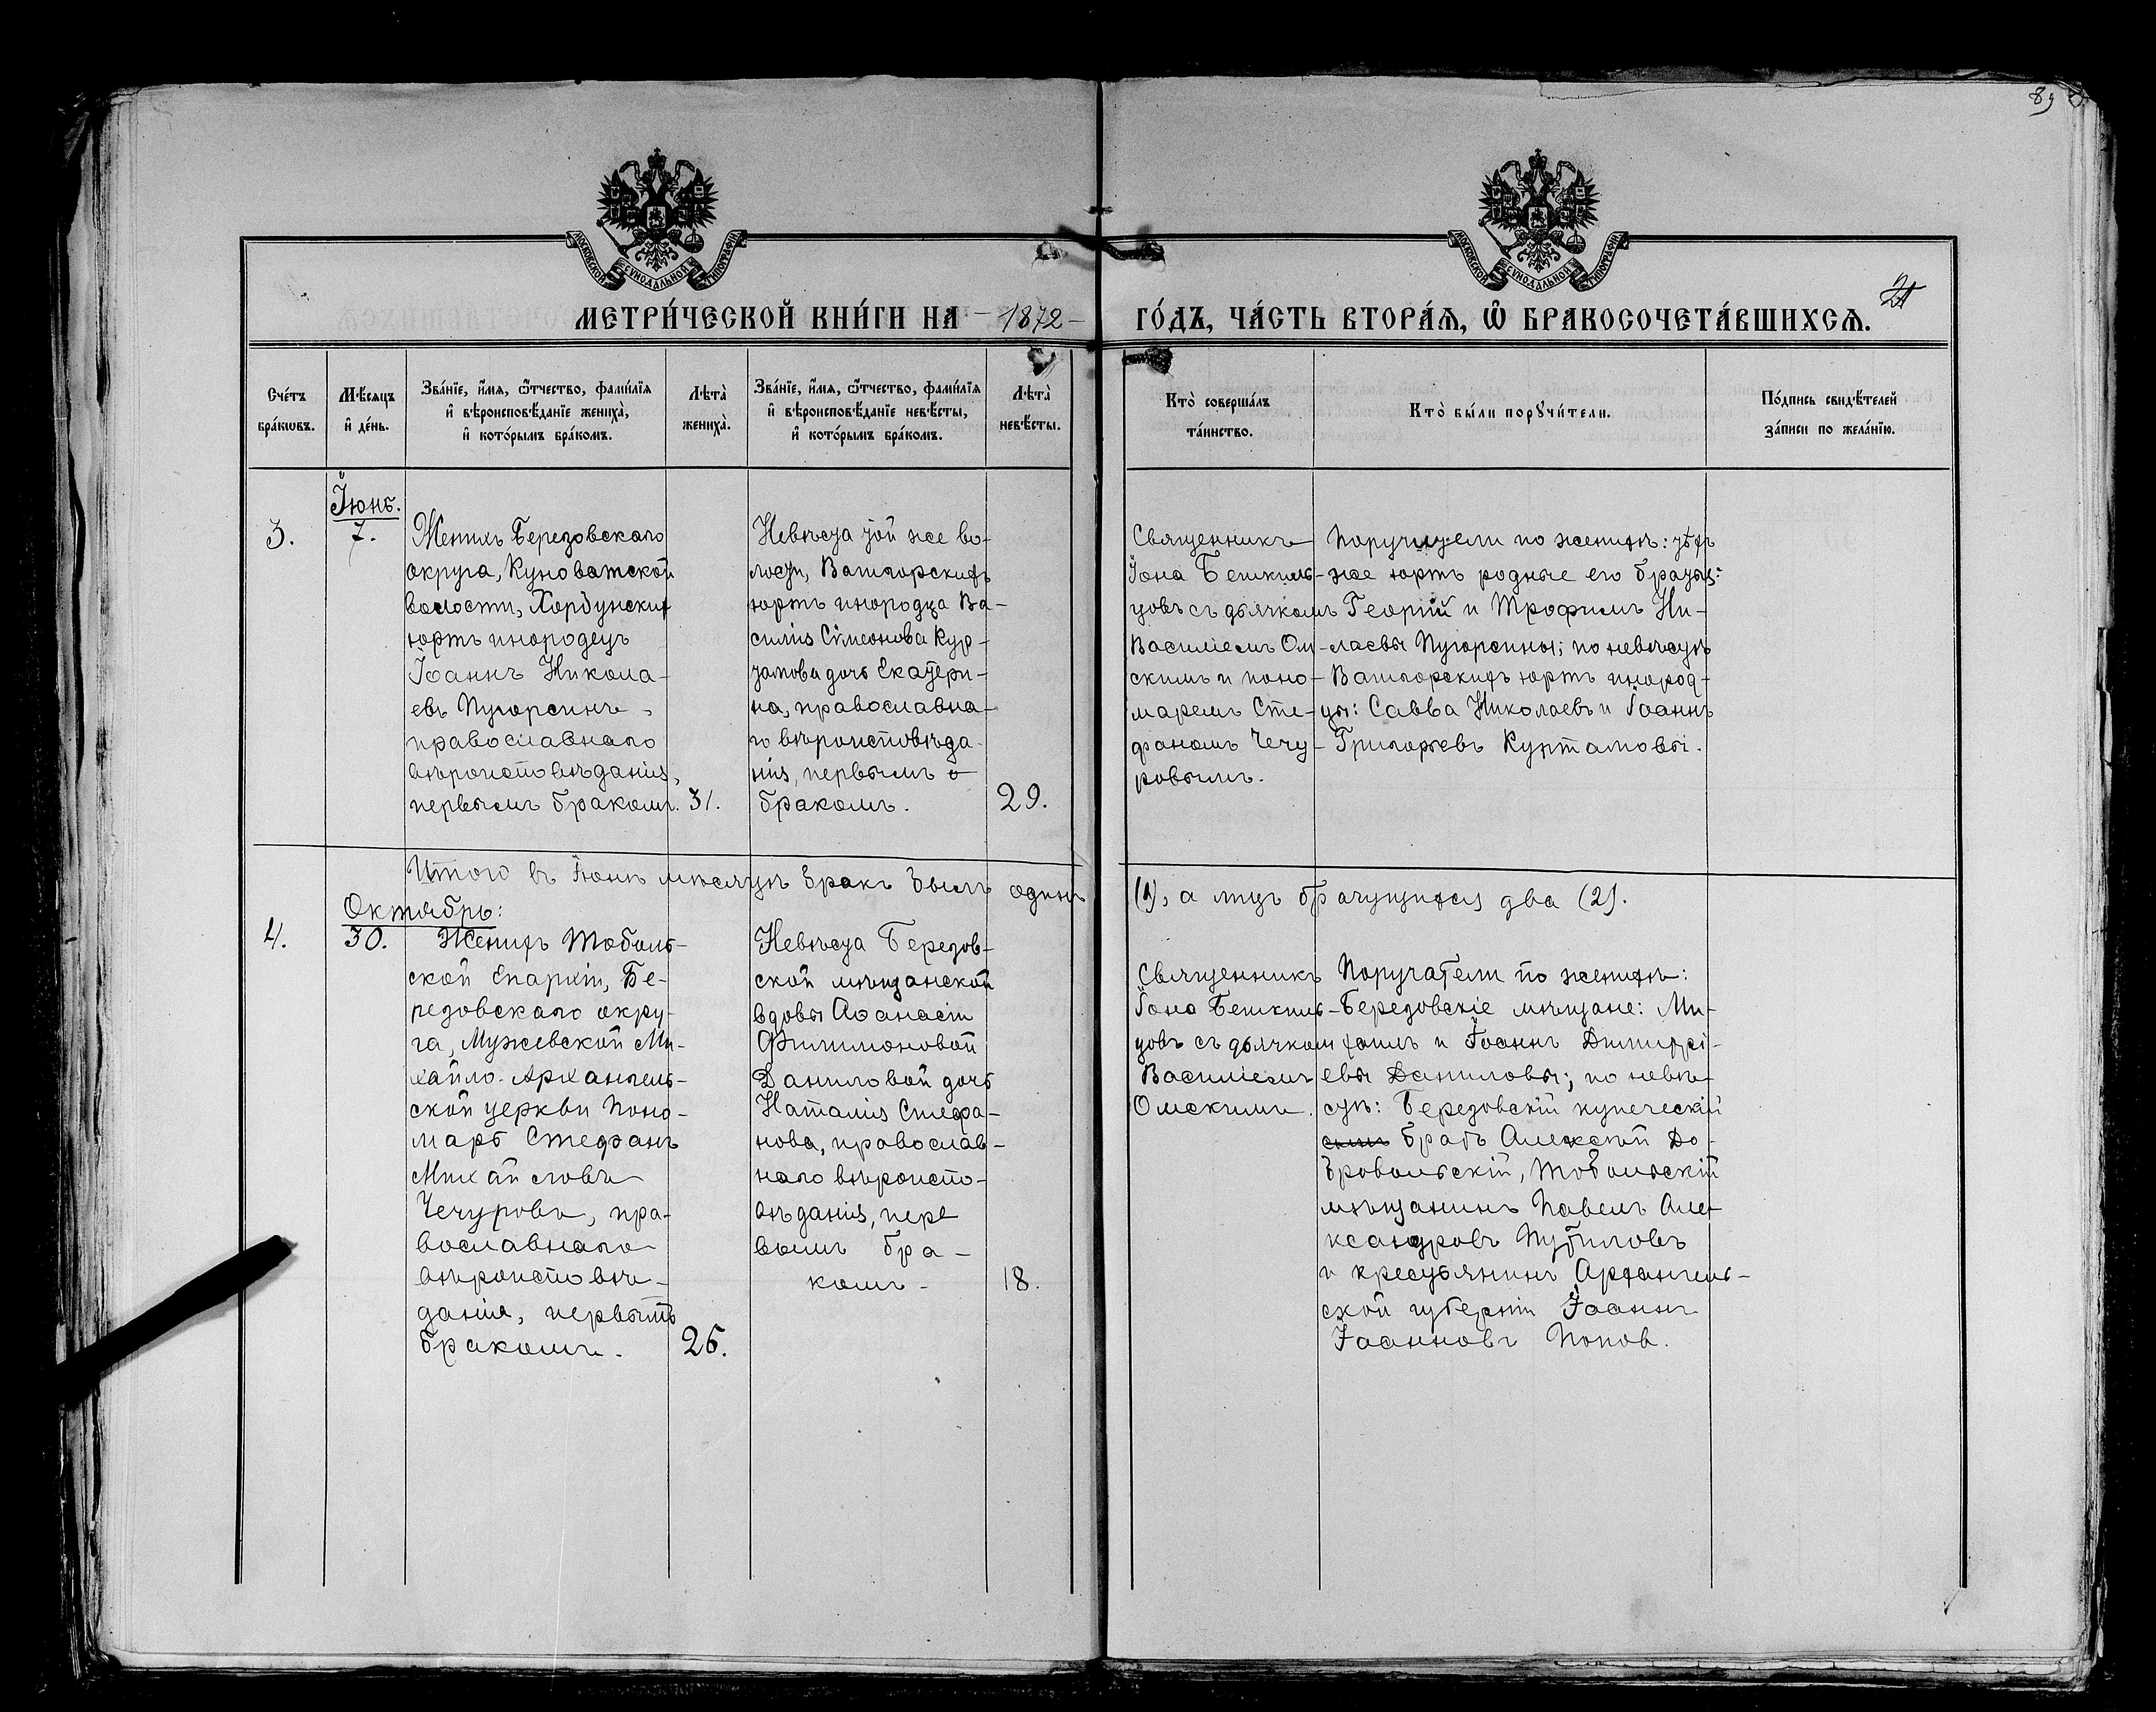 89
МОСКОВСКОЙ СѴНОДАЛЬНОЙ ТИПОГРАФІИ
МОСКОВСКОЙ СѴНОДАЛЬНОЙ ТИПОГРАФІИ
МЕТРИ́ЧЕСКОЙ КНИ́ГИ НА - 1872 - ГО́ДЪ, ЧА́СТЬ ВТОРА́Я, Ѡ҆ БРАКОСОЧЕТА́ВШИХСЯ.
Сче́тъ
бра́кѡвъ.
Мѣ́сяцъ
и҆ де́нь.
Зва́нїе, и҆́мя, ѻ҆́тчество, фами́лїя
и҆ вѣроисповѣ́данїе жениха̀,
и҆ кото́рымъ бра́комъ.
Лѣта̀
жениха̀.
Зва́нїе, и҆́мя, ѻ҆́тчество, фами́лїя
и҆ вѣроисповѣ́данїе невѣ́сты,
и҆ кото́рымъ бра́комъ.
Лѣта̀
невѣ́сты.
Кто̀ соверша́лъ
та́инство.
Кто̀ бы́ли порꙋчи́тели.
По́дпись свидѣ́телей
за́писи по жела́нїю.
3.
Іюнь.
7.
Женихъ Березовскаго
округа, Куноватской
волости, Хорбунскихъ
юртъ инородецъ
Іоаннъ Никола-
евъ Пугорсинъ,
православнаго
вѣроисповѣданія,
первымъ бракомъ.
31.
Невѣста той же во-
лости, Вашгорскихъ
юртъ инородца Ва-
силія Сѵмеонова Кур-
тамова дочь Екатери-
на, православна-
го вѣроисповѣда-
нія, первымъ
бракомъ.
29.
Священникъ
Іона Бешкиль-
цовъ съ дьячкомъ
Василіемъ Ом-
скимъ и поно-
маремъ Сте-
фаномъ Чечу-
ровымъ.
Поручители по женихѣ: тѣхъ
же юртъ родные его братья:
Георгій и Трофимъ Ни-
лаевы Пугорсины; по невѣстѣ
Вашгорскихъ юртъ инород-
цы: Савва Николаевъ и Іоаннъ
Григорьевъ Куртамовы.
Итого въ Іюнѣ мѣсяцѣ бракъ былъ одинъ (1), а лицъ брачущихся два (2).
4.
Октябрь:
30.
Женихъ Тоболь-
ской Епархіи, Бе-
резовскаго окру-
га, Мужевской Ми-
хайло-Архангель-
ской церкви Поно-
марь Стефанъ
Михайловъ
Чечуровъ, пра-
вославнаго
вѣроисповѣ-
данія, первымъ
бракомъ.
26.
Невѣста Березов-
ской мѣщанской
вдовы Аѳанасіи
Филимоновой
Даниловой дочь
Наталія Стефа-
нова, православ-
наго вѣроиспо-
вѣданія, пер
вымъ бра-
комъ.
18.
Священникъ
Іона Бешкиль-
цовъ съ дьячком
Василіемъ
Омскимъ.
Поручатели по женихѣ:
Березовскіе мѣщане: Ми-
хаилъ и Іоаннъ Димитрі-
евы Даниловы; по невѣ-
стѣ: Березовскій купеческій
братъ Алексѣй До-
бровольскій, Тобольскій
мѣщанинъ Павелъ Але-
ксандровъ Путиловъ
и крестьянинъ Архангель-
ской губерніи Іоаннъ
Іоанновъ Попов.